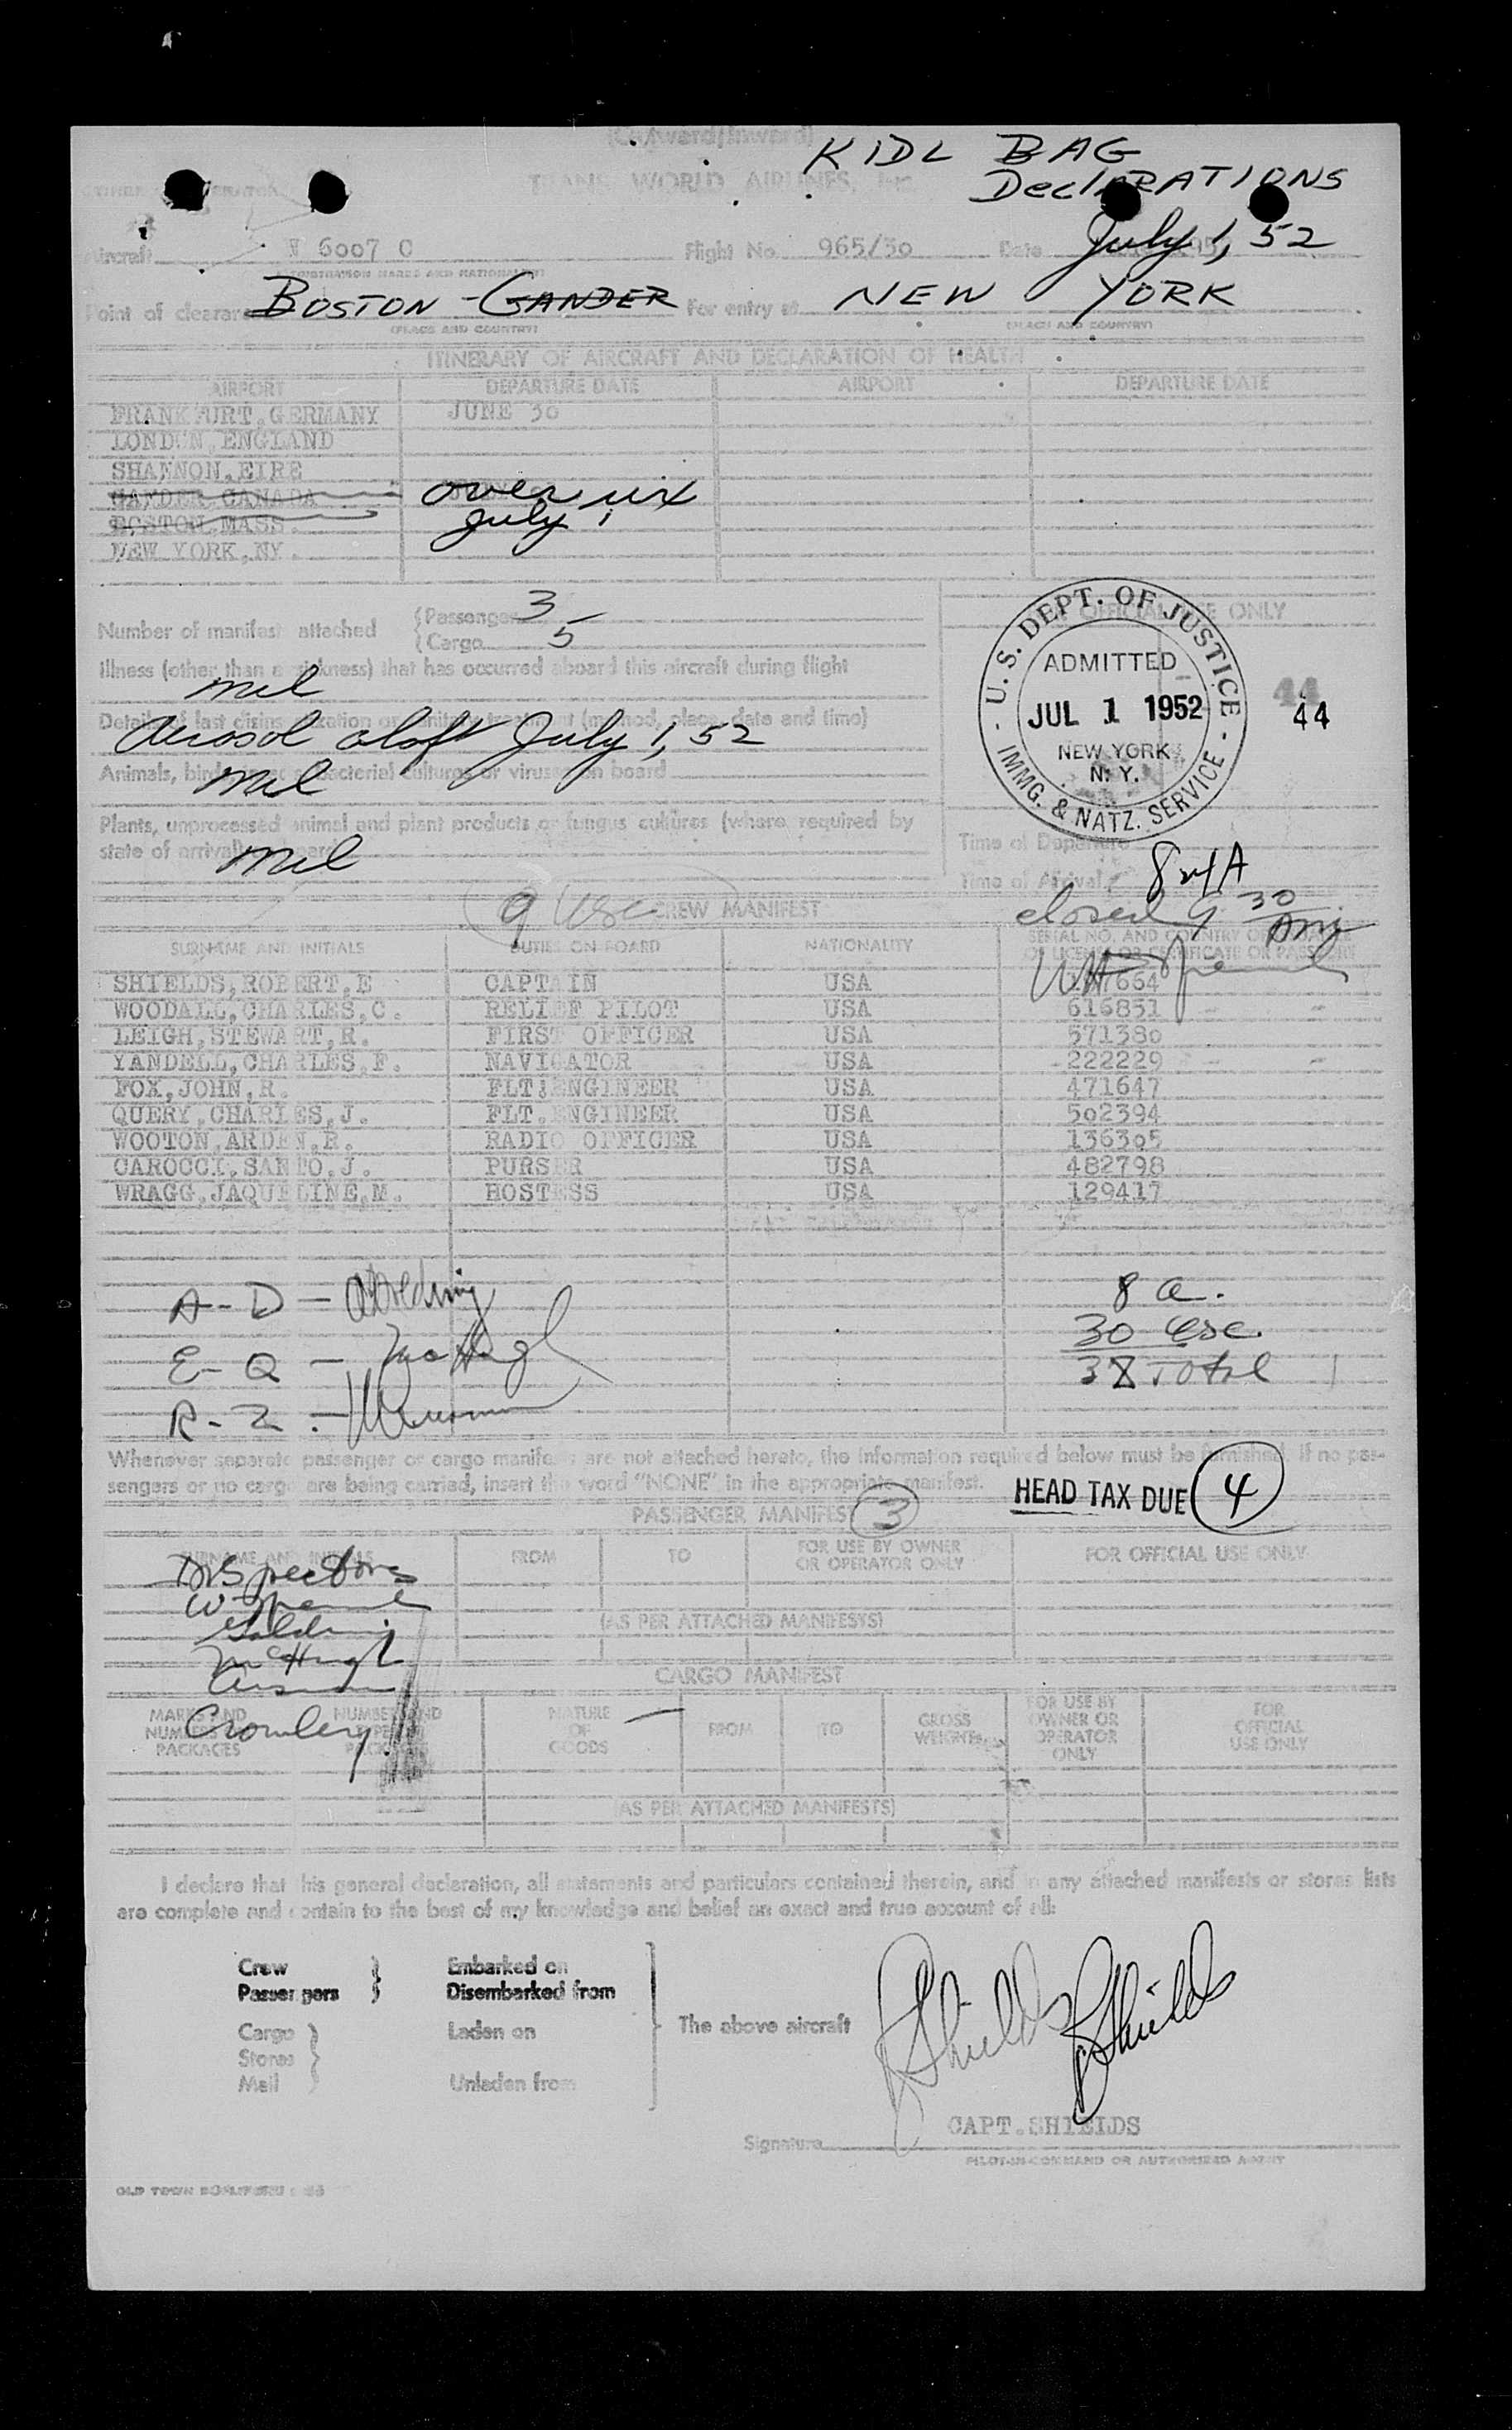 (Outward/Inward)
KIDL BAG
DeclARATIONS
TRANS WORLD AIRLINES, Inc
July 1, 52
Aircraft N 6007 C Flight No. 965/30 Date
(REGISTRATION MARKS AND NATIONALITY)
Point of clearance BOSTON - GANDER For entry at NEW YORK
(PLACE AND COUNTRY) (PLACE AND COUNTRY)
ITINERARY OF AIRCRAFT AND DECLARATION OF HEALTH
AIRPORT DEPARTURE DATE AIRPORT DEPARTURE DATE
FRANKFURT,GERMANY JUNE 30
LONDON,ENGLAND
SHANNON,EIRE
GANDER CANADA over
BOSTON,MASS. July 1
NEW YORK,NY.
Number of manifest attached
{Passenger 3
{Cargo 5
OFFICIAL USE ONLY
Illness (other than airsickness) that has occurred aboard this aircraft during flight
nil
Details of last disinsectization or sanitary treatment (method, place, date and time)
Aerosol aloft July 1, 52
Animals, birds, insects, bacterial cultures or viruses on board
nil
Plants, unprocessed animal and plant products or fungus cultures (where required by
state of arrival) on board
nil
U.S. DEPT. OF JUSTICE
ADMITTED
JUL 1 1952
NEW YORK
N. Y.
IMMG. & NATZ. SERVICE
44
44
Time of Departure
Time of Arrival
closed 9 30 AM
9 USC CREW MANIFEST
SURNAME AND INITIALS DUTIES ON BOARD NATIONALITY SERIAL NO. AND COUNTRY OF ISSUANCE
OF LICENSE OR CERTIFICATE OR PASSPORT
SHIELDS,ROBERT,E CAPTAIN USA
WOODALL,CHARLES,C. RELIEF PILOT USA 616851
LEIGH,STEWART,R. FIRST OFFICER USA 571380
YANDELL,CHARLES,F. NAVIGATOR USA 222229
FOX,JOHN,R. FLT.ENGINEER USA 471647
QUERY,CHARLES,J. FLT.ENGINEER USA 502394
WOOTON,ARDEN,R. RADIO OFFICER USA 136305
CAROCCI,SANTO,J. PURSER USA 482798
WRAGG,JAQUELINE,M. HOSTESS USA 129417
A - D - Golding
E - Q - McHugh
R - Z -
8 a.
30 usc.
38 Total
Whenever separate passenger or cargo manifests are not attached hereto, the information required below must be furnished. If no pas-
sengers or no cargo are being carried, insert the word "NONE" in the appropriate manifest.
HEAD TAX DUE 4
PASSENGER MANIFEST 3
SURNAME AND INITIALS FROM TO FOR USE BY OWNER
OR OPERATOR ONLY FOR OFFICIAL USE ONLY
Inspectors
Golding
McHugh
Crowley
(AS PER ATTACHED MANIFESTS)
CARGO MANIFEST
MARKS AND
NUMBERS
PACKAGES
NUMBER AND
TYPE OF
PACKAGES
NATURE
OF
GOODS
FROM
TO
GROSS
WEIGHTS
FOR USE BY
OWNER OR
OPERATOR
ONLY
FOR
OFFICIAL
USE ONLY
(AS PER ATTACHED MANIFESTS)
I declare that this general declaration, all statements and particulars contained therein, and in any attached manifests or stores lists
are complete and contain to the best of my knowledge and belief an exact and true account of all:
Crew } Embarked on
Passengers } Disembarked from
Cargo } Laden on
Stores
Mail } Unladen from
The above aircraft
Shields Shields
CAPT.SHIELDS
Signature
PILOT-IN-COMMAND OR AUTHORIZED AGENT